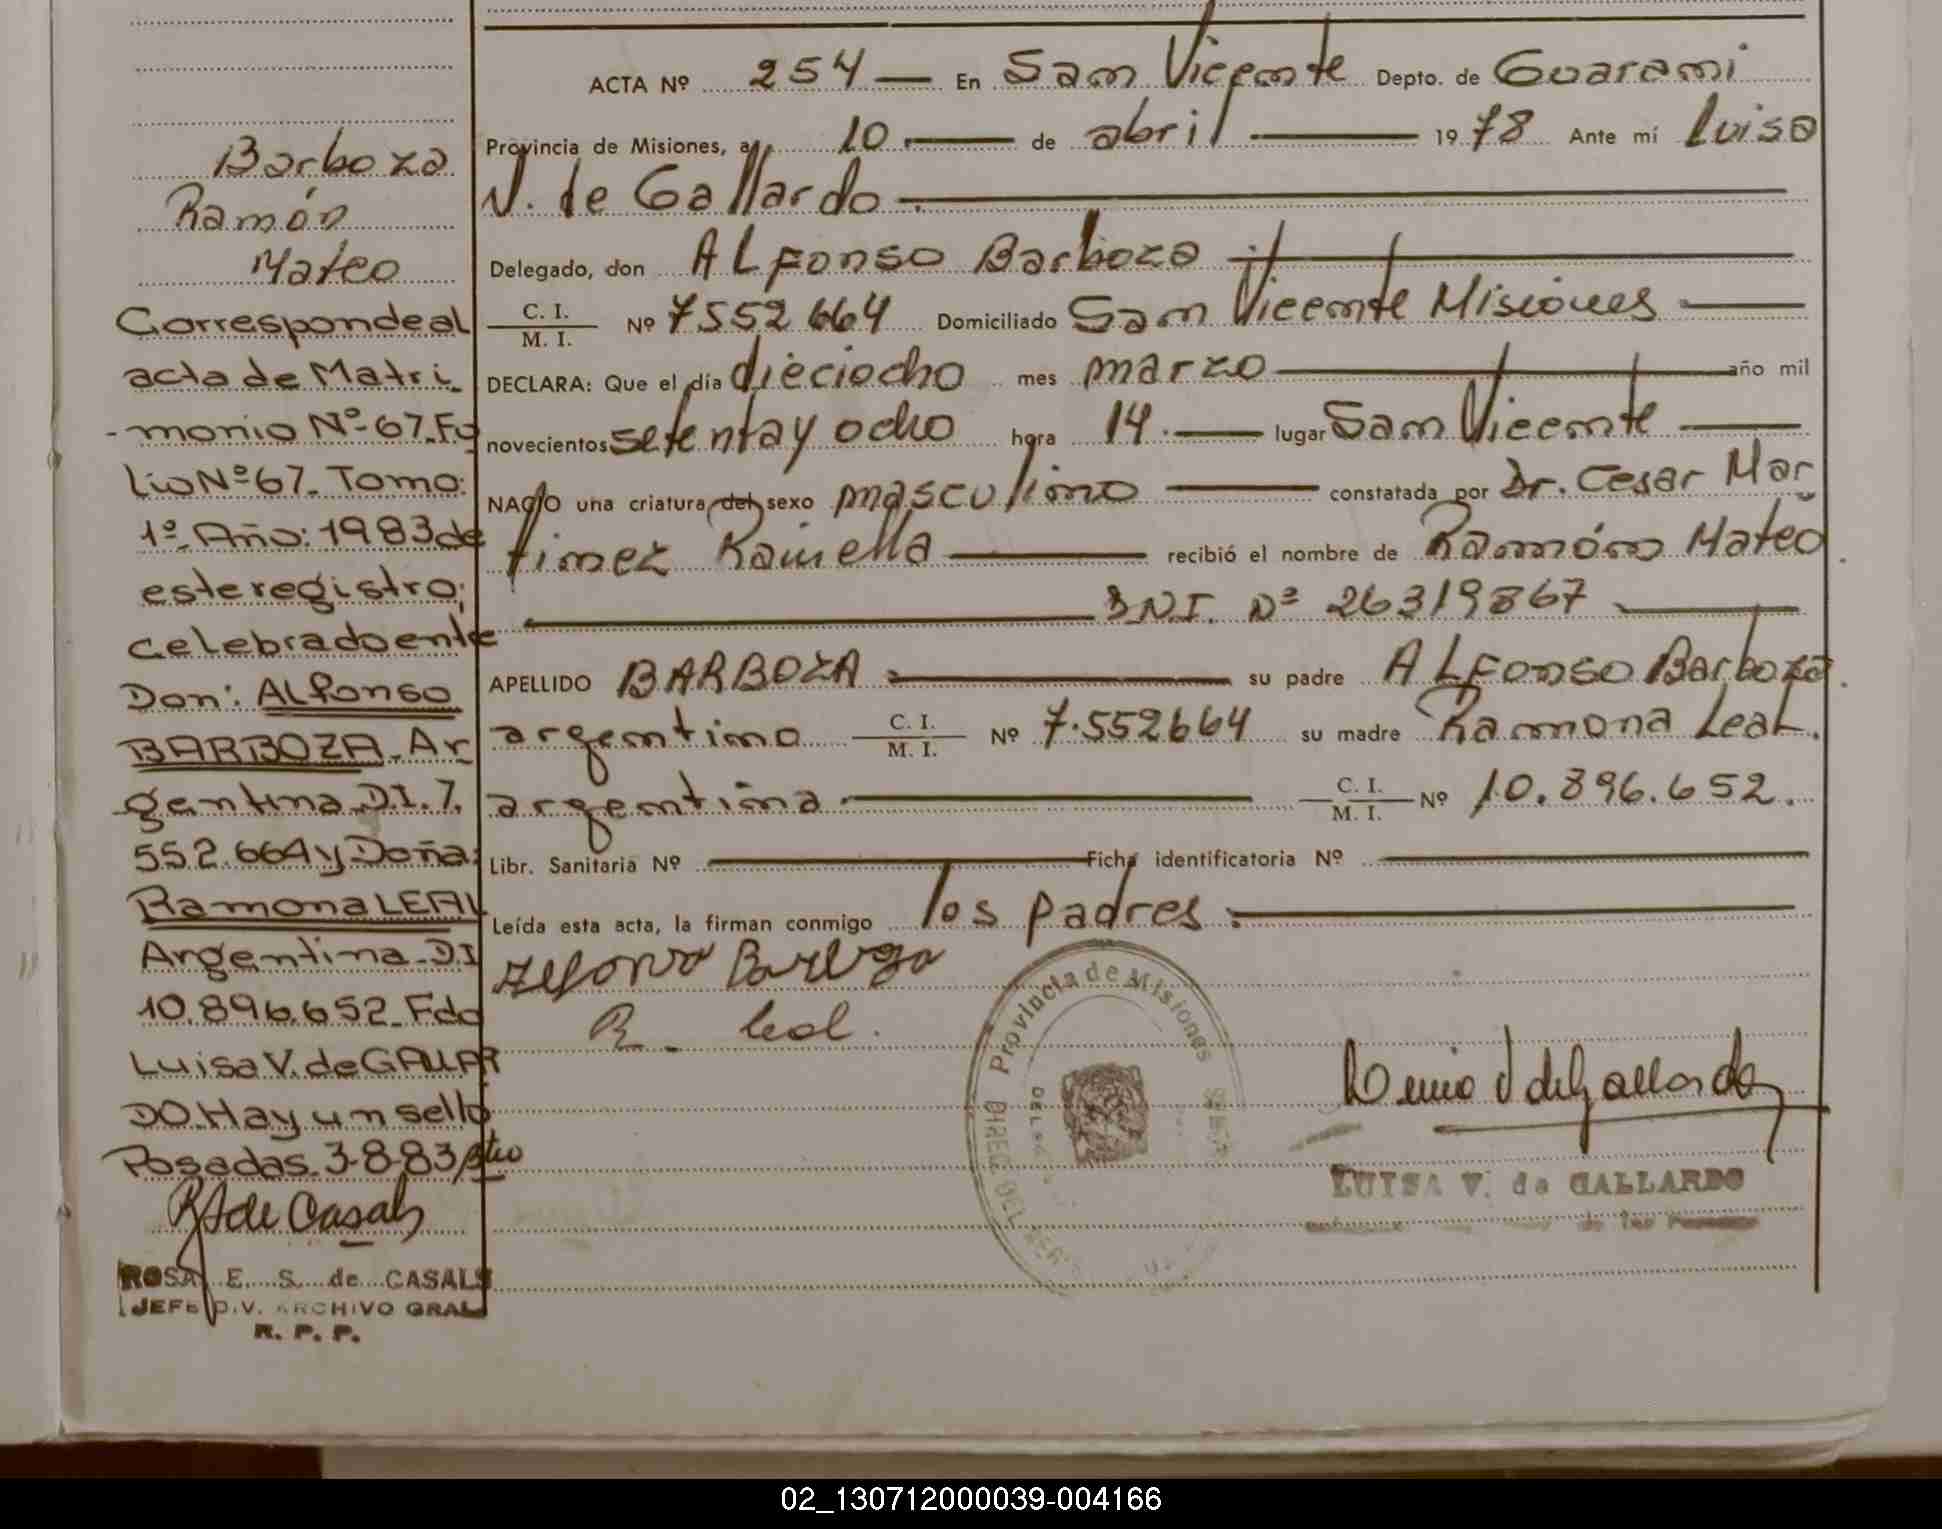 Barboza
Ramón
Mateo
Corresponde al
acta de Matri
monio Nº 67. Fo
lio Nº 67. Tomo:
1º. Año: 1983 de
este registro;
celebrado entre
Don: ALfonso
BARBOZA. Ar
gentina. D.I. 7.
552.664 y Doña:
Ramona LEAL
Argentina. D.I
10.896.652. Fdo
Luisa V. de GALLAR
DO. Hay un sello
Posadas. 3-8-83
RS de Casals
ROSA E. S. de CASALS
JEFE DIV. ARCHIVO GRAL
R. P. P.
ACTA Nº 254 En San Vicente Depto. de Guarani
Provincia de Misiones, a 10 de abril 1978 Ante mí Luisa
V. de Gallardo
Delegado, don ALFonso Barboza
C. I. / M. I. Nº 7552664 Domiciliado San Vicente Misiones
DECLARA: Que el día dieciocho mes marzo año mil
novecientos setenta y ocho hora 14. lugar San Vicente
NACIO una criatura del sexo masculino constatada por Dr. Cesar Mar
tinez Rainella recibió el nombre de Ramón Mateo
D.N.I. Nº 26319867
APELLIDO BARBOZA su padre ALFonso Barboza.
argentino C. I. / M. I. Nº 7.552664 su madre Ramona Leal.
argentina C. I. / M. I. Nº 10.896.652.
Libr. Sanitaria Nº Ficha identificatoria Nº
Leída esta acta, la firman conmigo los padres.
Alfonso Barboza
R. Leal.
Provincia de Misiones
Luisa V de Gallardo
LUISA V. de GALLARDO
de las Personas
02_130712000039-004166